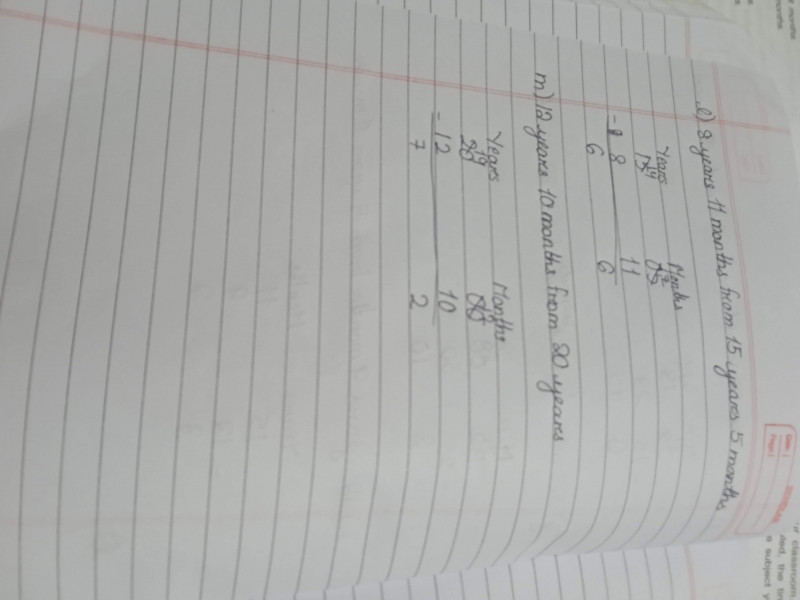 l) 8 years 11 months from 15 years 5 months
Years Months
14 17
15 05
- 8 11
6 6
m) 12 years 10 months from 20 years
Years Months
19 12
20 00
- 12 10
7 2
months
Date:
Page:
classroom
the
subject